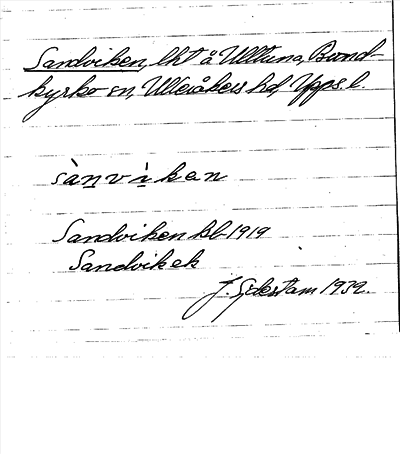 Sandviken, lht å Ulltuna, Bond-
kyrko sn, Ulleråkers hd, Upps. l.
sànvìkan
Sandviken kb 1919
Sandvik ek
J. Sjdestam 1932.